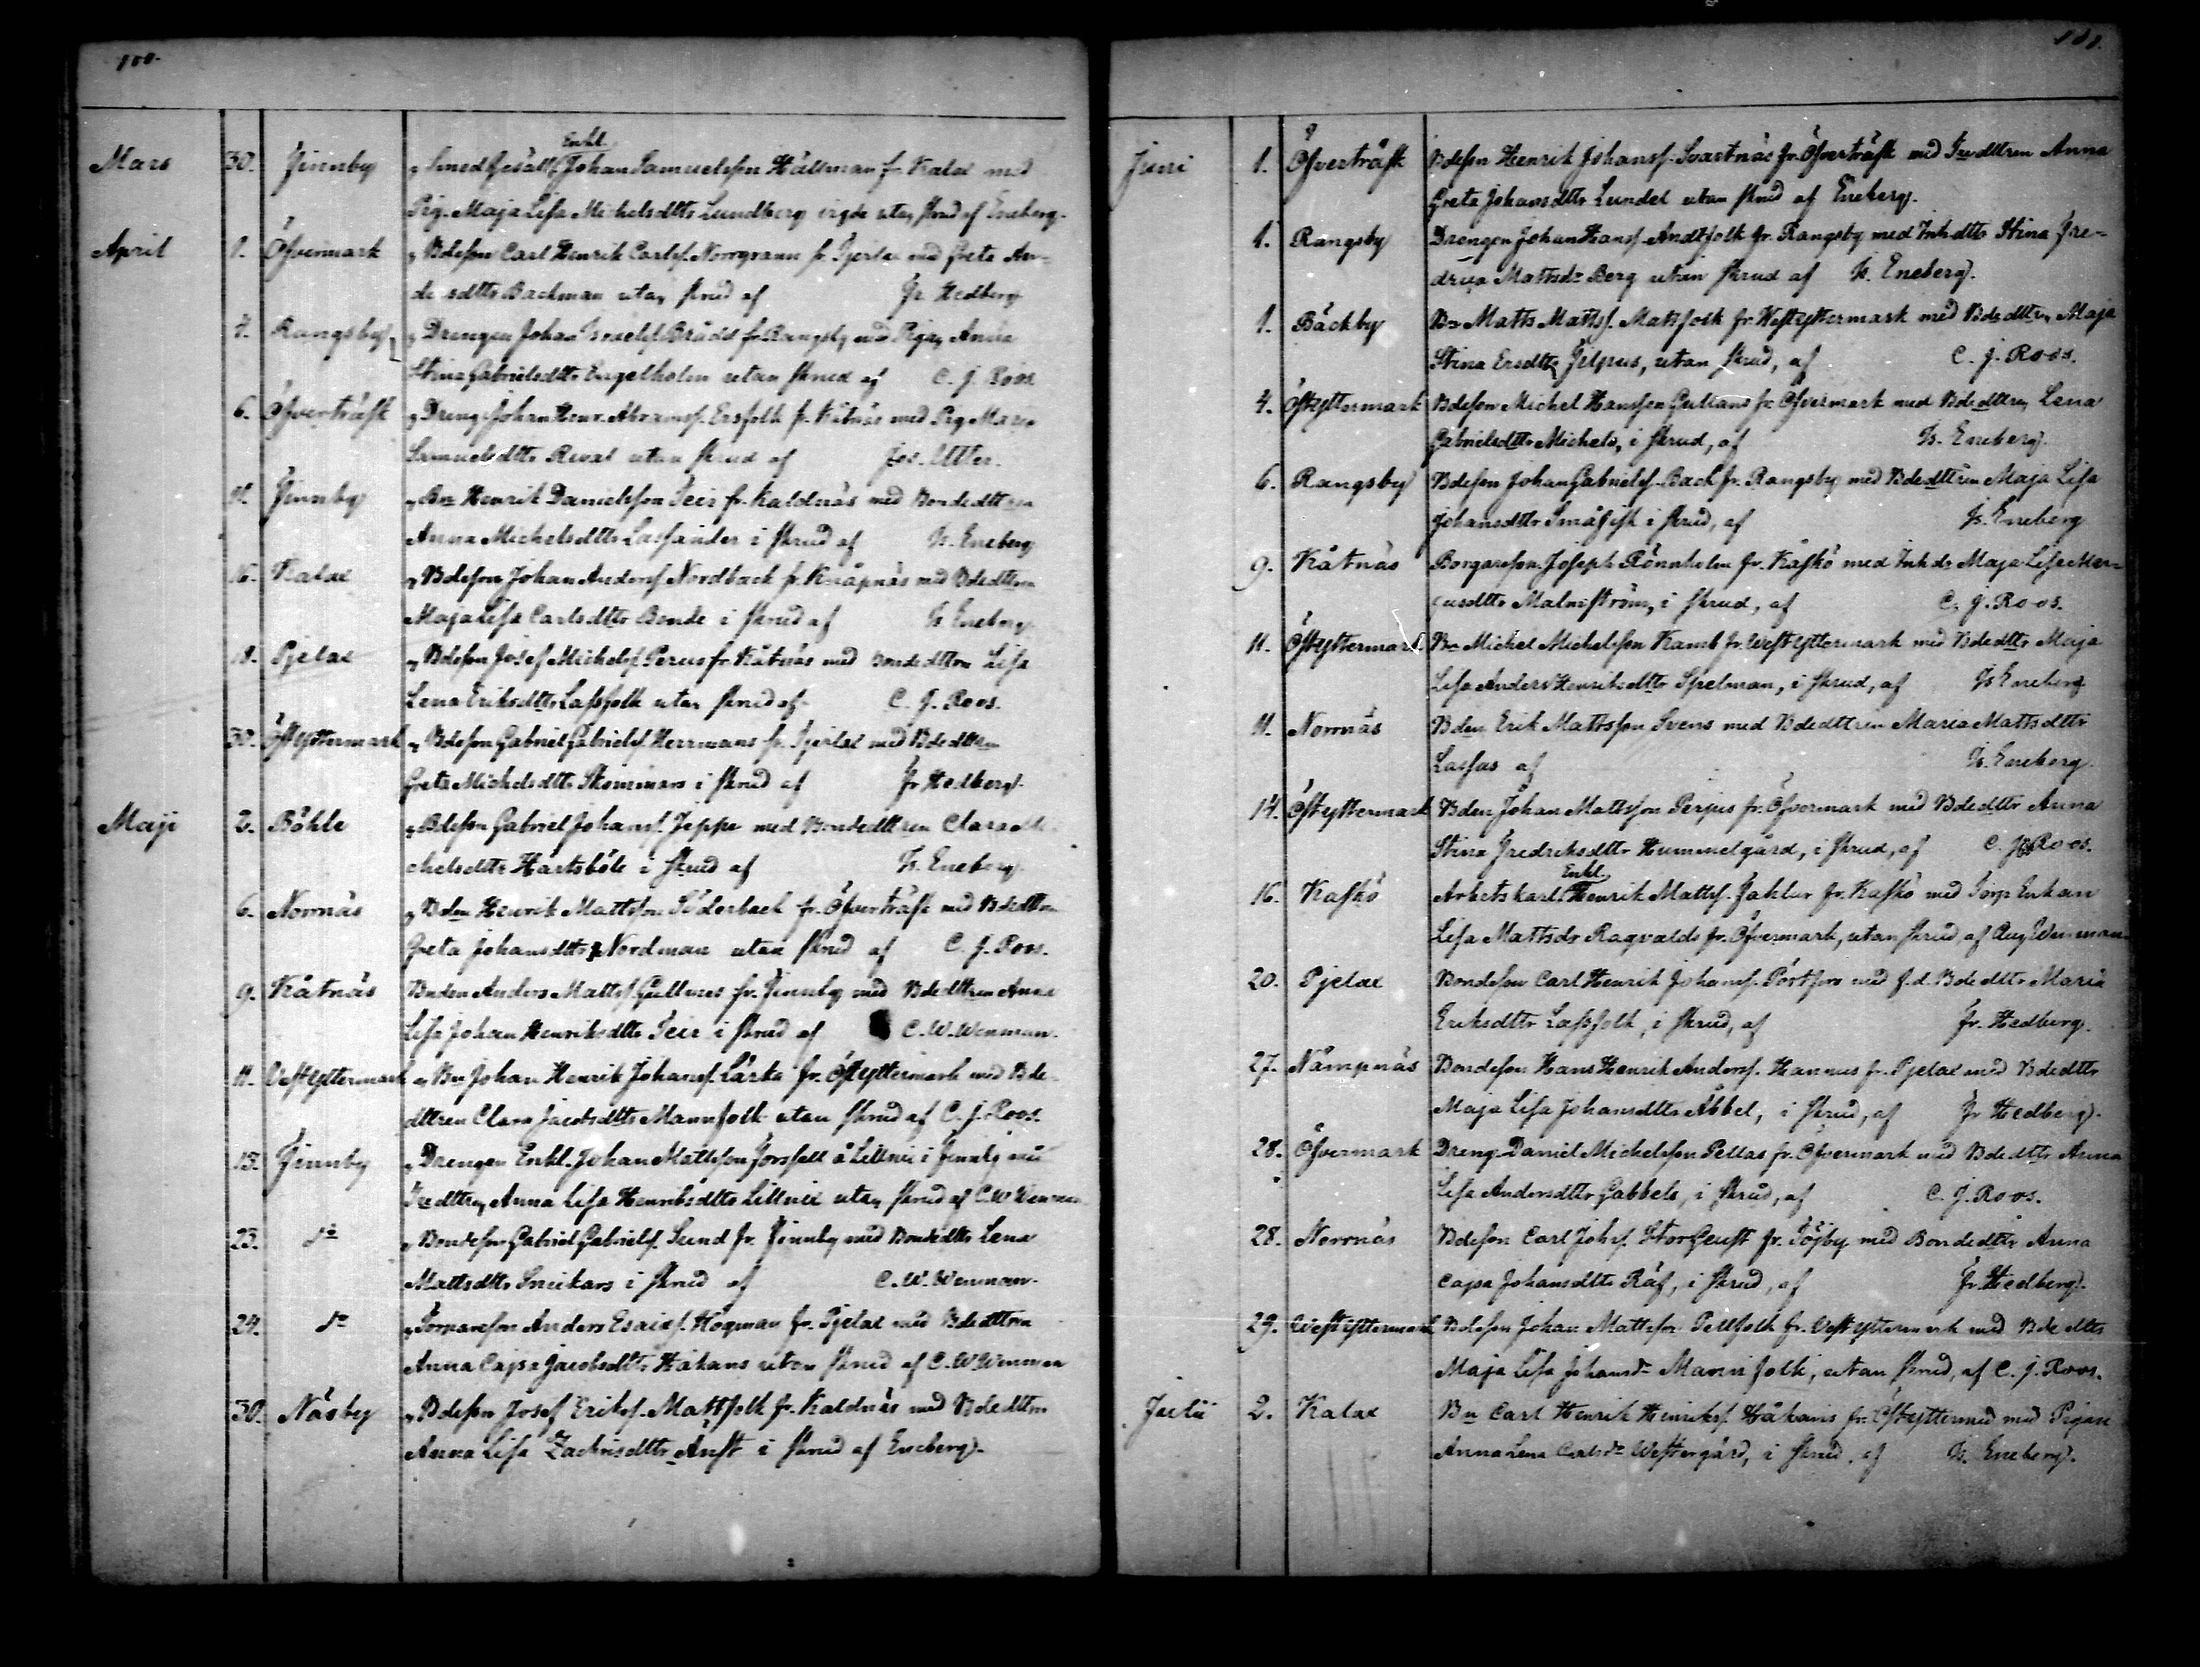 180.
Mars 30. Finnby Smedgesällen Enkl. Johan Samuelsson Hällman fr. Kalax med
Pig. Maja Lisa Michelsdttr Lundberg vigde utan skrud af Eneberg.
April 1. Öfvermark Bdeson Carl Henrik Carlss. Norrgrann fr. Pjelax med Greta An-
dersdttr Backman utan skrud af Fr. Hedberg
4. Rangsby Drengen Johan Israelss. Brädd fr. Rangsby med Pigan Anna
Stina Gabrielsdttr Engelholm utan skrud af C. J. Roos
6. Öfverträsk Dreng. Johan Henr. Abramss. Ersfolk fr. Kåtnäs med Pig. Maria
Samuelsdttr Rival utan skrud af Jos. Utter.
11. Finnby Bn Henrik Danielsson Teir fr. Kaldnäs med Bondedttren
Anna Michelsdttr Lassander i skrud af Is. Eneberg
16. Kalax Bdeson Johan Anderss. Nordback fr. Knåpnäs med Bdedttren
Maja Lisa Carlsdttr Bonde i skrud af Is. Eneberg
18. Pjelax Bdeson Josef Michelss. Perus fr. Kåtnäs med Bondedttren Lisa
Lena Eriksdttr Lassfolk utan skrud af C. J. Roos.
30. Östyttermark Bdeson Gabriel Gabrielss. Herrmans fr. Pjelax med Bdedttren
Greta Michelsdttr Skinnars i skrud af Fr Hedberg.
Maji 2. Böhle Bdeson Gabriel Johanss. Jeppe med Bondedttren Clara Mi-
chelsdttr Hartsböle i skrud af Is. Eneberg.
6. Norrnäs Bden Henrik Mattsson Söderback fr. Öfverträsk med Bdedttren
Greta Johansdttr Nordman utan skrud af C. J. Roos.
9. Kåtnäs Bnden Anders Mattss. Gullmes fr. Finnby med Bdedttren Anna
Lisa Johan Henriksdttr Teir i skrud af C. W. Wenman.
11. Vestyttermark Bn Johan Henrik Johanss. Lärka fr. Östyttermark med Bde-
dttren Clara Jacobsdttr Mannfolk utan skrud af C. J. Roos.
15. Finnby Drengen Enkl. Johan Mattsson Forssell å Lillnii i Finnby med
Anna Lisa Henriksdttr Lillnii utan skrud af C. W Wenman
23. do Bondeson Gabriel Gabrielss. Sund fr. Finnby med Bondedttr Lena
Mattsdttr Sneckars i skrud af C. W. Wenman.
24. do Torpareson Anders Esaiæs. Högman fr. Pjelax med Bdedttren
Anna Cajsa Jacobsdttr Håkans utan skrud af C. W Wenman
30. Näsby Bdeson Josef Erikss. Mattfolk fr. Kaldnäs med Bdedttren
Anna Lisa Zachrisdttr Anst i skrud af Eneberg.
181.
Juni 1. Öfverträsk Bdeson Henrik Johanss. Svartnäs fr. Öfverträsk med Anna
Greta Johansdttr Lundel utan skrud af Eneberg.
1. Rangsby Drengen Johan Hanss. Andtfolk fr. Rangsby med Inhdttr Stina Fre-
drica Mattsdr Berg utan skrud af Is. Eneberg.
1. Bäckby Bn Matts Mattss. Mattfolk fr. Westyttermark med Bdedttren Maja
Stina Ersdttr Filpus, utan skrud, af C. J. Roos.
4. Östyttermark Bdeson Michel Hansson Gullans fr. Öfvermark med Bdedttren Lena
Gabrielsdttr Michels, i skrud, af Is. Eneberg.
6. Rangsby Bdeson Johan Gabrielss. Back fr. Rangsby med Bdedttren Maja Lisa
Johansdttr Småfisk i skrud, af Is. Eneberg
9. Kåtnäs Borgareson Joseph Rönnholm fr. Kaskö med Inhdr Maja Lisa Mar-
cusdttr Malmström, i skrud, af C. J. Roos.
11. Östyttermark Bn Michel Michelsson Kamb fr. Westyttermark med Bdedttr Maja
Lisa Anders Henriksdttr Spelman, i skrud, af Is Eneberg
11. Norrnäs Bden Erik Mattsson Svens med Bdedttren Maria Mattsdttr
Lassas af Is. Eneberg.
14. Östyttermark Bden Johan Mattsson Perjus fr. Öfvermark med Bdedttr Anna
Stina Fredriksdttr Hummelgård, i skrud, af C. J. Roos.
16. Kaskö Arbetskarl. Enkl. Henrik Mattss. Jahlur fr. Kaskö med Torp. Enkan
Lisa Mattsdr Ragvalds fr. Öfvermark, utan skrud af Aug. Wenman
20. Pjelax Bondeson Carl Henrik Johanss. Pörtfors med f.d. Bdedttr Maria
Eriksdttr Lassfolk, i skrud, af Fr. Hedberg.
27. Nämpnäs Bondeson Hans Henrik Anderss. Hannus fr. Pjelax med Bdedttr
Maja Lisa Johansdttr Åbbel, i skrud, af Fr Hedberg.
28. Öfvermark Dreng. Daniel Michelsson Pellas fr. Öfvermark med Bdedttr Anna
Lisa Andersdttr Gabbels, i skrud, af C. J. Roos.
28. Norrnäs Bdeson Carl Johss. StorGeust fr. Töjby med Bondedttr Anna
Cajsa Johansdttr Räf, i skrud, af Fr. Hedberg.
29. Westyttermark Bdeson Johan Mattsson Pellfolk fr. Westyttermark med Bdedttr
Maja Lisa Johansdr Mannfolk, utan skrud, af C. J. Roos.
Julii 2. Kalax Bn Carl Henrik Henrikss. Håkans fr. Östyttermrd med Pigan
Anna Lena Carlsdr Westergård, i skrud, af Is. Eneberg.